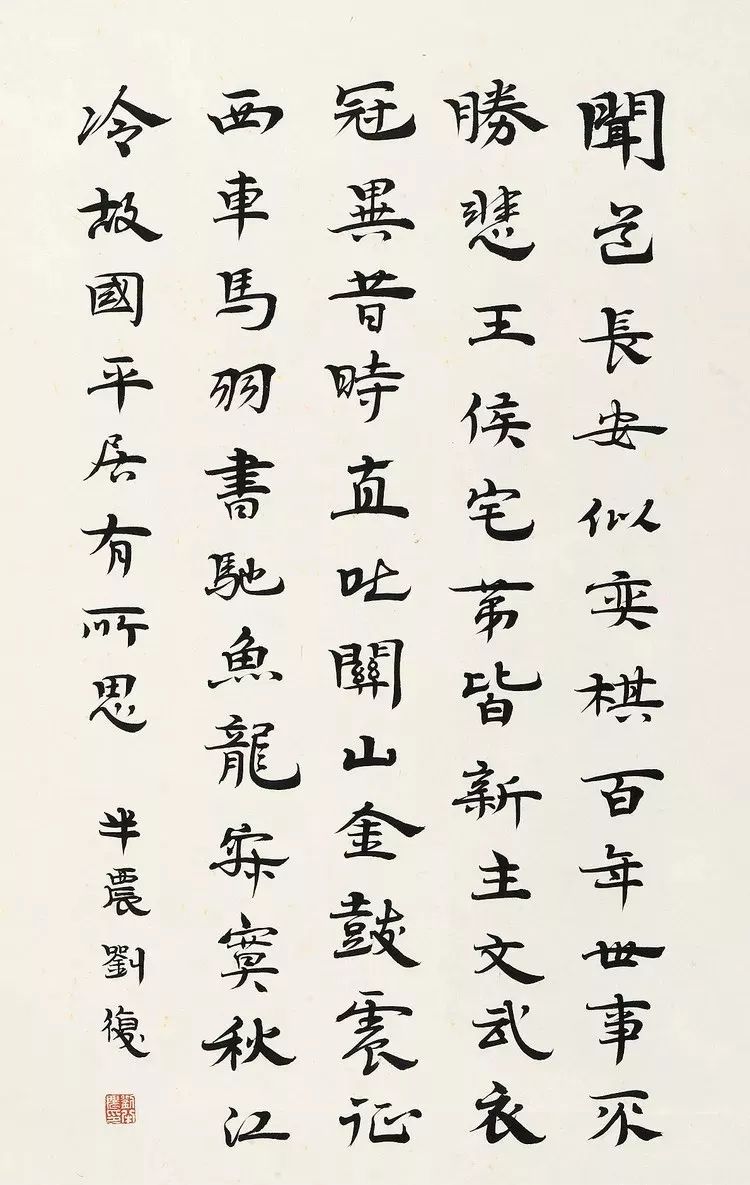 聞道長安似奕棋百年世事不
勝悲王侯宅第皆新主文武衣
冠異昔時直北關山金鼓震征
西車馬羽書馳魚龍寂寞秋江
冷故國平居有所思 半農劉復